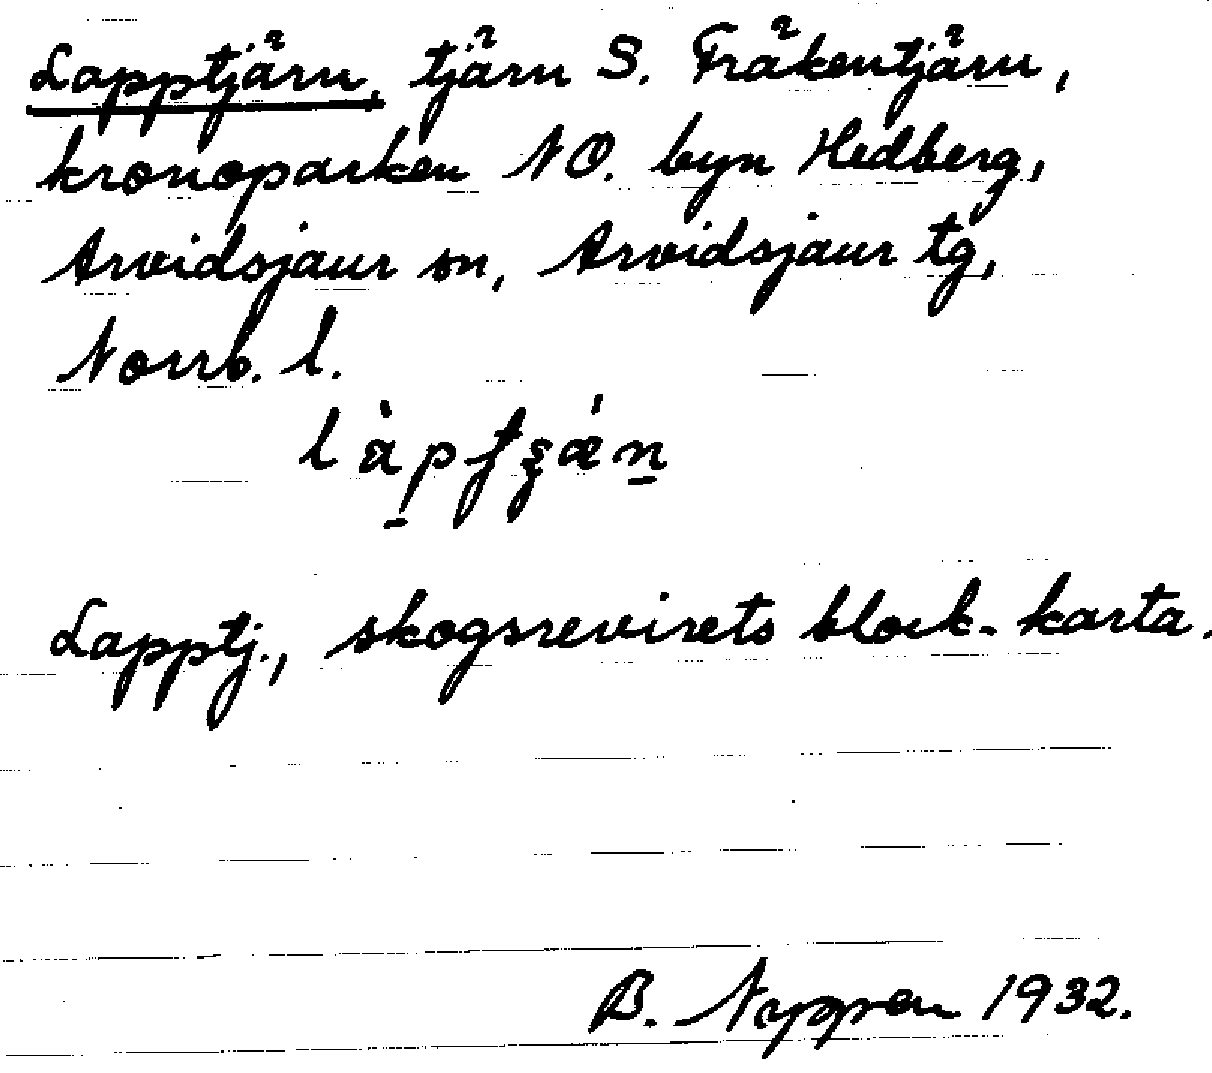 Lapptjärn, tjärn S. Fräkentjärn,
kronoparken NO. byn Hedberg,
Arvidsjaur sn, Arvidsjaur tg,
Norrb. l.
Lapptj., skogsrevirets block-karta.
B. Nyppen 1932.